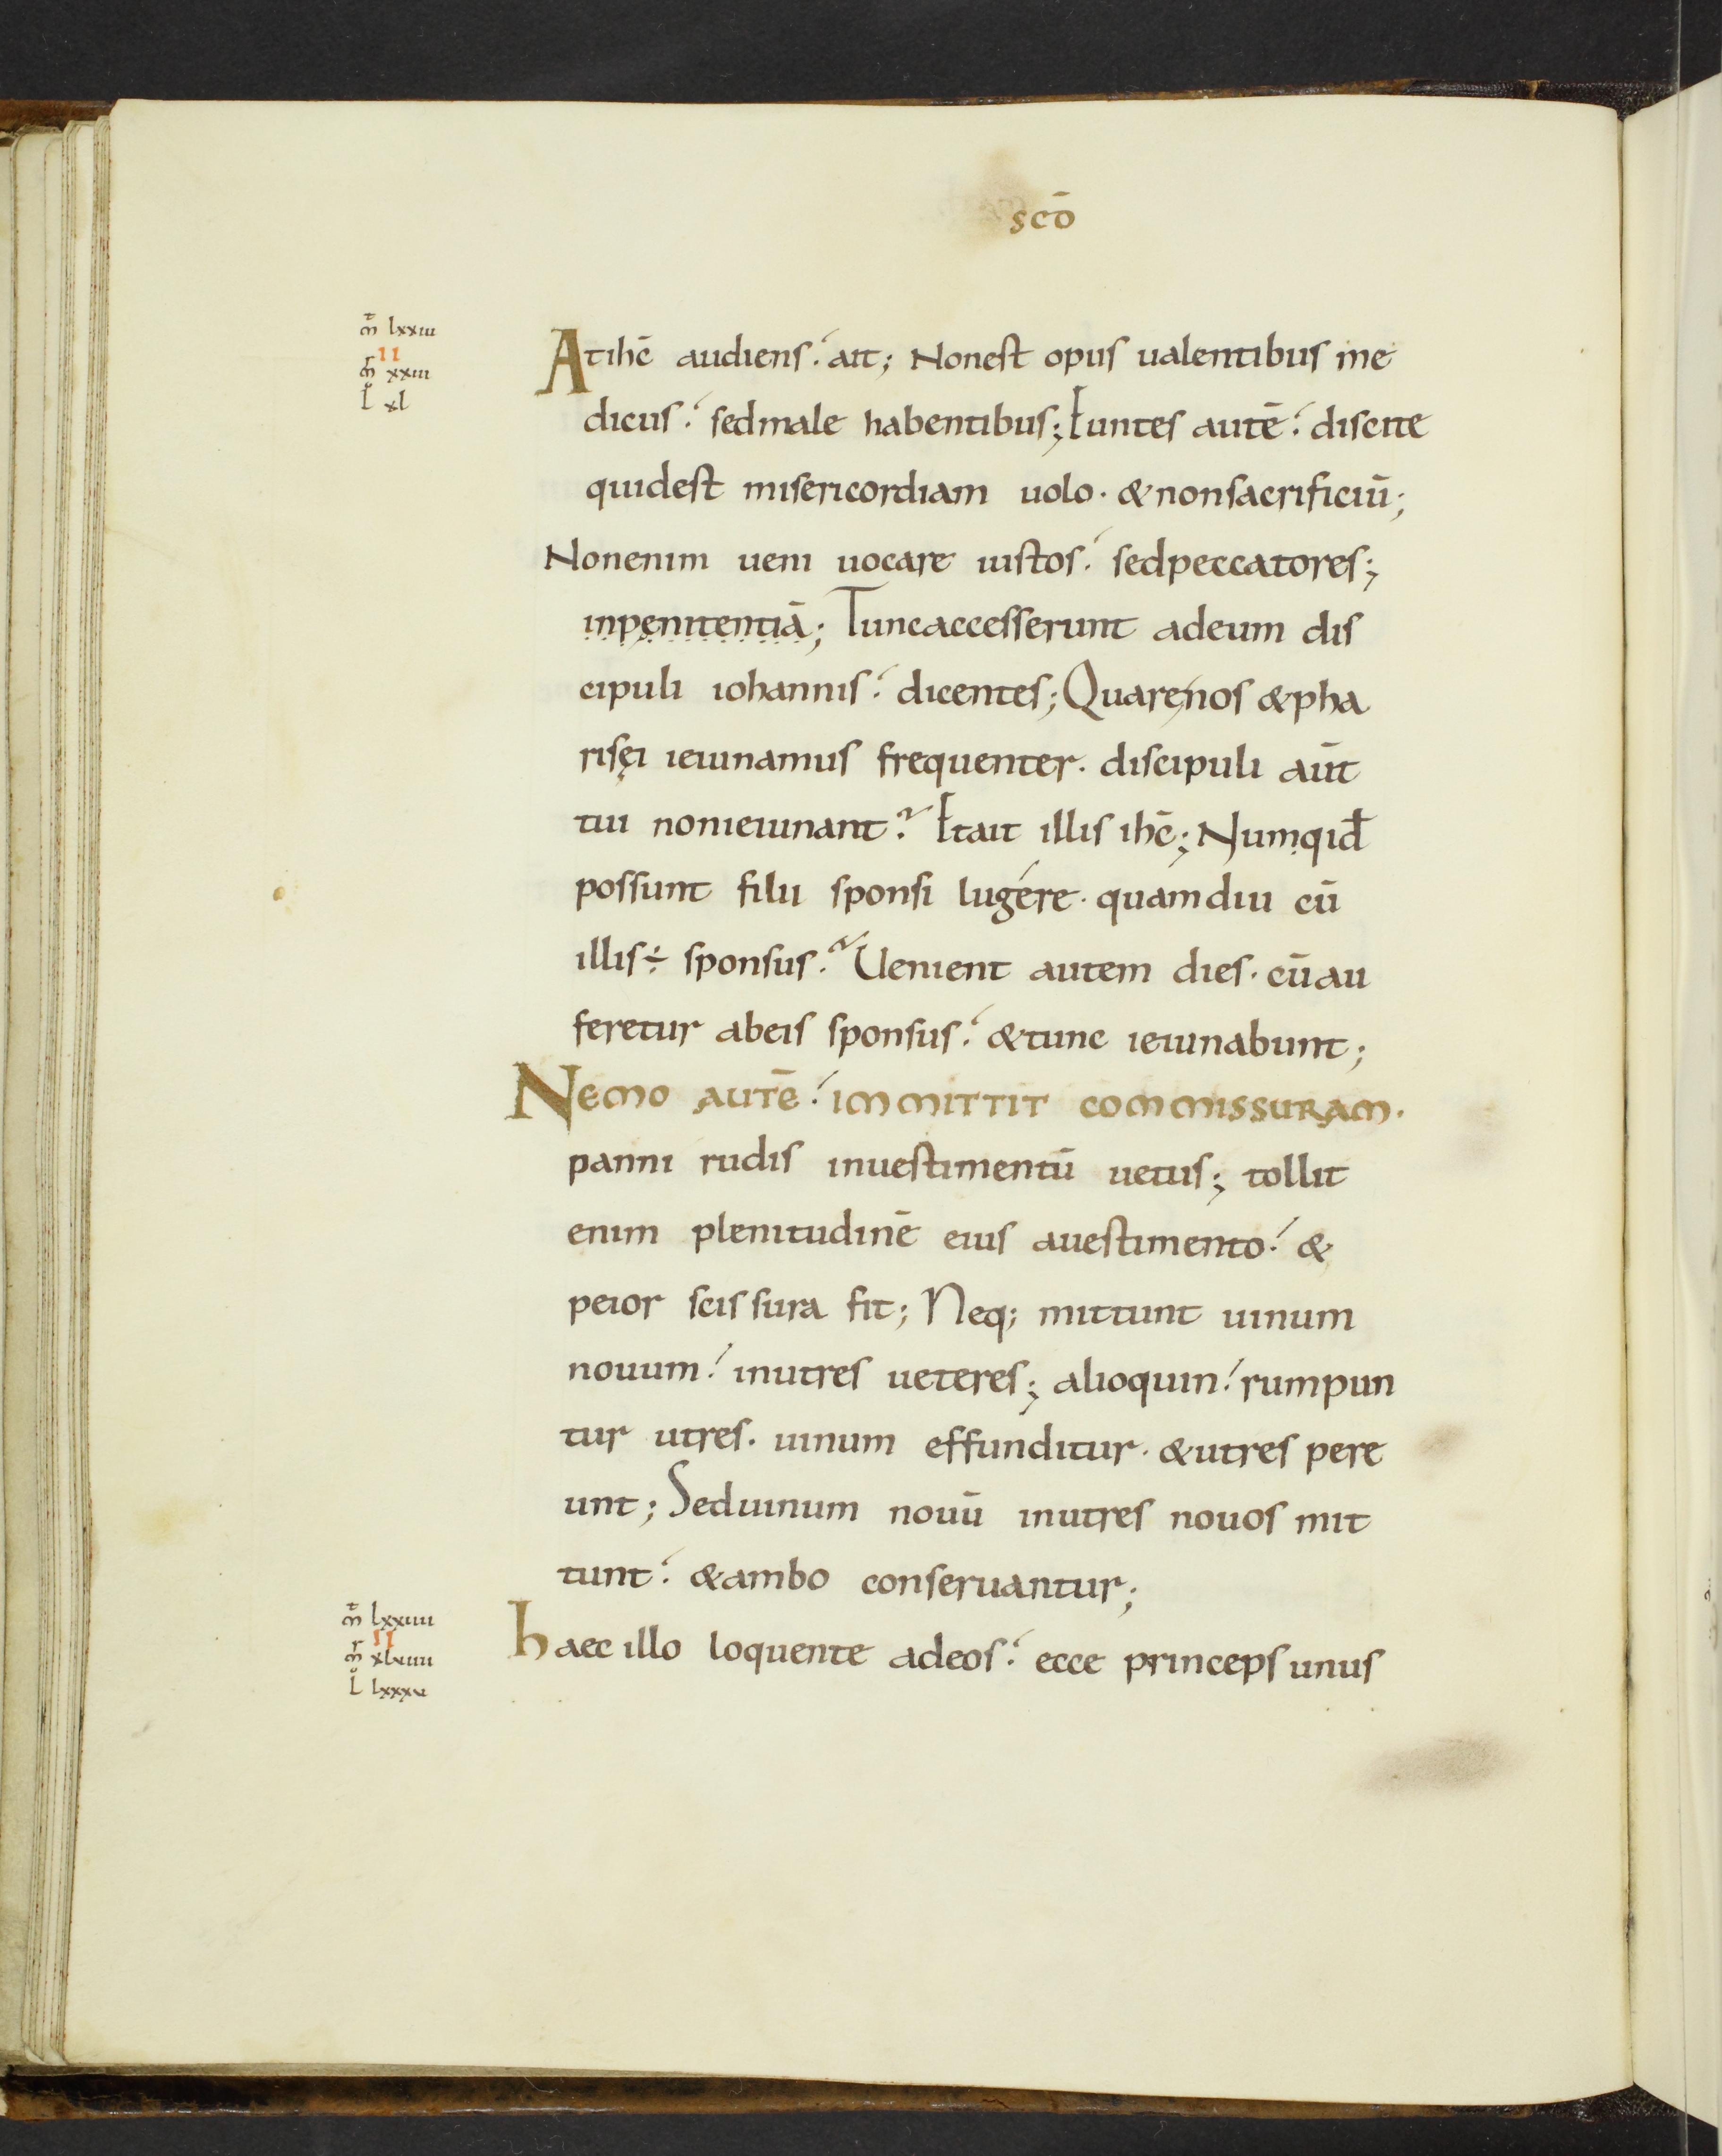 scō
m̄ lxxiii
II
m̄ xxiii
l xl
Atihē audiens: ait; Nonest opus ualentibus me
dicus: sedmale habentibus; Euntes autē: discite
quidest misericordiam uolo · &nonsacrificiū;
Nonenim ueni uocare iustos: sedpeccatores;
inpęnitentiā; Tuncaccesserunt adeum dis
cipuli iohannis: dicentes; Quarenos &pha
risęi ieiunamus frequenter · discipuli aūt
tui nonieiunant? Etait illis ihē; Numqid
possunt filii sponsi lugére · quamdiu cū
illis÷ sponsus? Uenient autem dies · cūau
feretur abeis sponsus: &tunc ieiunabunt;
Nemo autē: immittit commissuram ·
panni rudis inuestimentū uetus; tollit
enim plenitudinē eius auestimento: &
peior scissura fit; Neq; mittunt uinum
nouum: inutres ueteres; alioquin: rumpun
tur utres · uinum effunditur · &utres pere
unt; Seduinum nouū inutres nouos mit
tunt: &ambo conseruantur;
m̄ lxxiiii
II
m̄ xlviiii
l lxxxv
haec illo loquente adeos: ecce princeps unus